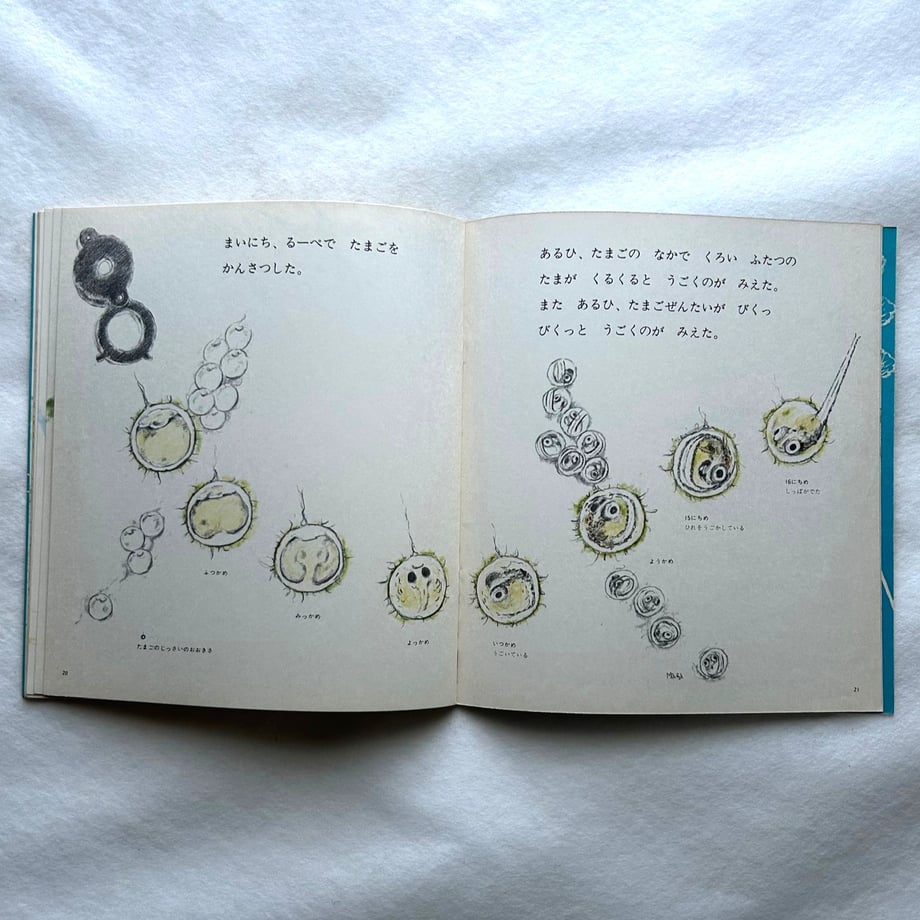 まいにち、るーぺで　たまごを
かんさつした。
ふつかめ
みっかめ
よっかめ
たまごのじっさいのおおきさ
20
あるひ、たまごの　なかで　くろい　ふたつの
たまが　くるくると　うごくのが　みえた。
また　あるひ、たまごぜんたいが　びくっ
びくっと　うごくのが　みえた。
16にちめ
しっぽがでた
15にちめ
ひれをうごかしている
ようかめ
いつかめ
うごいている
21